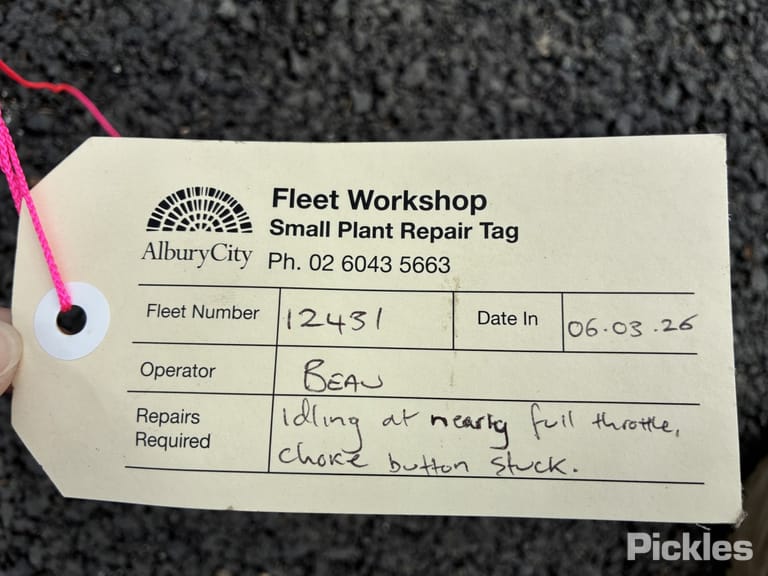 Fleet Workshop
Small Plant Repair Tag
AlburyCity
Ph. 02 6043 5663
Fleet Number 12431 Date In 06.03.26
Operator BEAU
Repairs Required idling at nearly full throttle,
choke button stuck.
Pickles